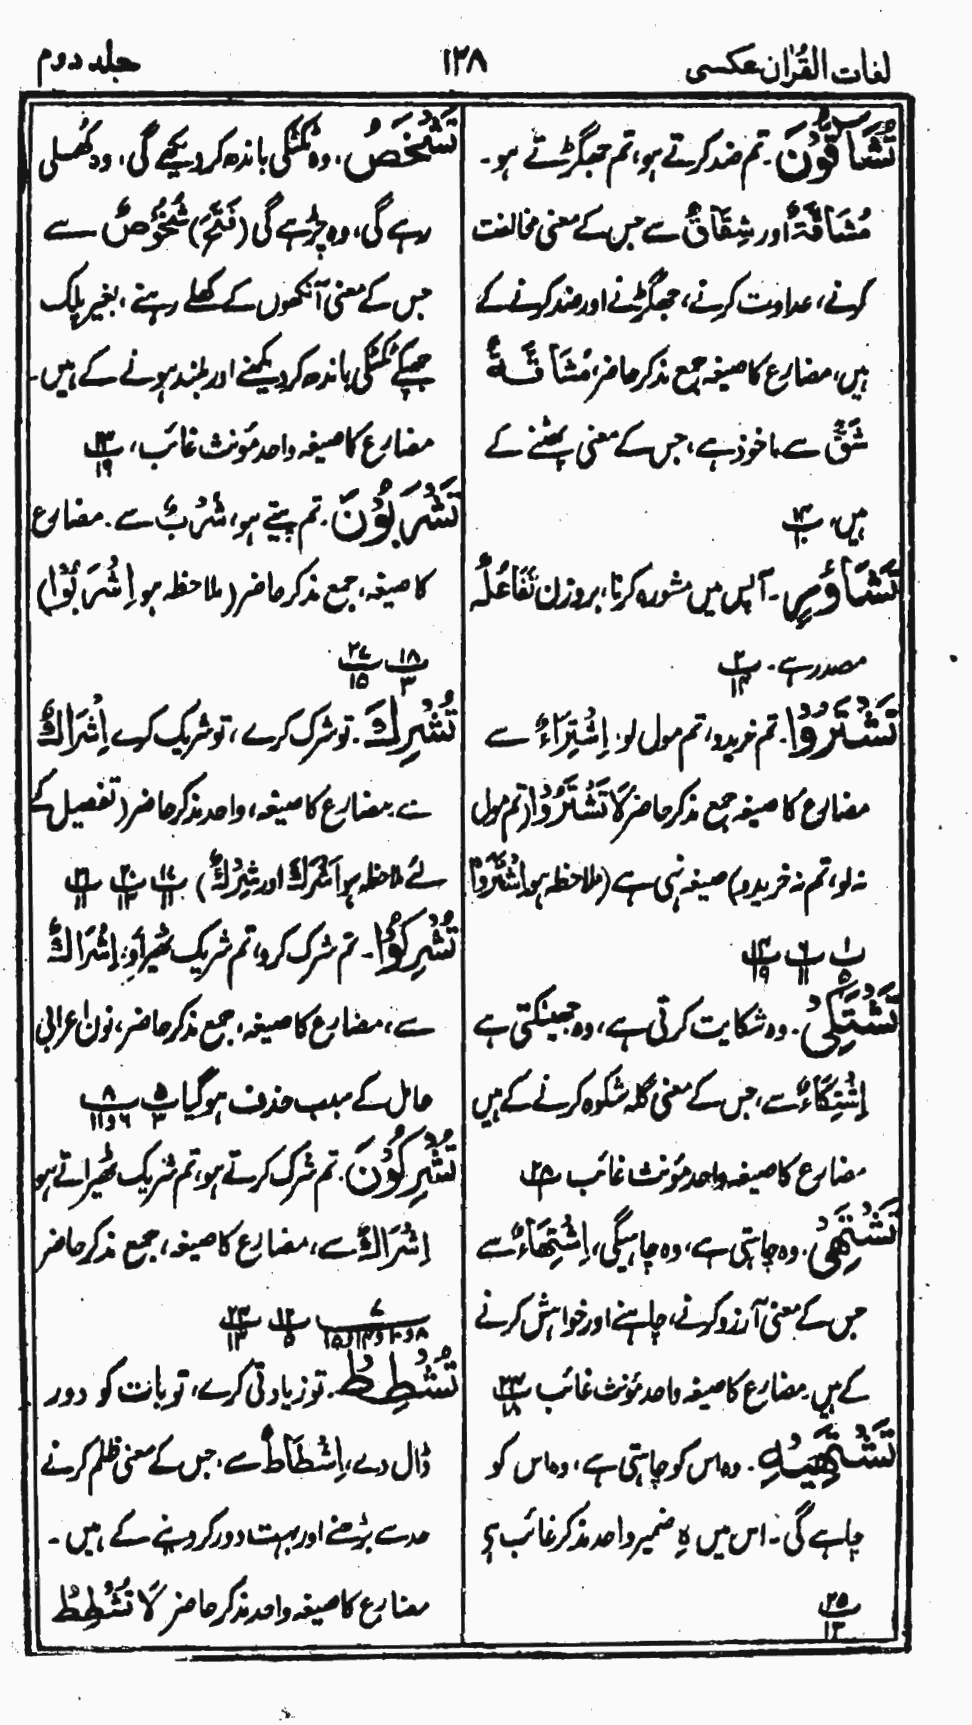 لغات القُرْاٰن عکسی
۱۲۸
جلد دوم
تُشَآقُّوْنَ ۔ تم ضد کرتے ہو، تم جھگڑتے ہو۔
مُشَاقَّۃٌ اور شِقَاقٌ سے جس کے معنی مخالفت
کرنے، عداوت کرنے، جھگڑنے اور ضد کرنے کے
ہیں، مضارع کا صیغہ جمع مذکر حاضر، مُشَاقَّۃٌ
شَقٌّ سے ماخوذ ہے، جس کے معنی پھٹنے کے
ہیں، پ۱۴ ۱۰
تَشَاوُرٍ ۔ آپس میں مشورہ کرنا، بروزن تَفَاعُلٌ
مصدر ہے۔ پ۲ ۱۴
تَشْتَرُوْا ۔ تم خریدو، تم مول لو۔ اِشْتِرَاءٌ سے
مضارع کا صیغہ جمع مذکر حاضر لَا تَشْتَرُوْا (تم مول
نہ لو، تم نہ خریدو) صیغہ نہی ہے (ملاحظہ ہو اشْتَرَوْا)
پ۱ ۵ پ۶ ۱۱ پ۱۴ ۱۹
تَشْتَکِیْ ۔ وہ شکایت کرتی ہے، وہ جھینکتی ہے
اِشْتِکَاءٌ سے، جس کے معنی گلہ شکوہ کرنے کے ہیں
مضارع کا صیغہ واحد مؤنث غائب پ۲۸
تَشْتَهِیْ ۔ وہ چاہتی ہے، وہ چاہیگی، اِشْتِهَاءٌ سے
جس کے معنی آرزو کرنے، چاہنے اور خواہش کرنے
کے ہیں۔ مضارع کا صیغہ واحد مؤنث غائب پ۲۴ ۱۸
تَشْتَهِیْهِ ۔ وہ اس کو چاہتی ہے، وہ اس کو
چاہے گی۔ اس میں ہِ ضمیر واحد مذکر غائب ہی
پ۲۵ ۱۳
تَشْخَصُ ، وہ ٹکٹکی باندھ کر دیکھے گی، وہ کھلی
رہے گی، وہ چڑھے گی (فَتَحَ) شُخُوْصٌ سے
جس کے معنی آنکھوں کے کھلے رہنے، بغیر پلک
جھپکے ٹکٹکی باندھ کر دیکھنے اور بلند ہونے کے ہیں۔
مضارع کا صیغہ واحد مؤنث غائب، پ۱۳ ۱۹
تَشْرَبُوْنَ ۔ تم پیتے ہو، شُرْبٌ سے ۔ مضارع
کا صیغہ، جمع مذکر حاضر (ملاحظہ ہو اِشْرَبُوْا)
پ۱۸ ۳ پ۲۷ ۱۵
تُشْرِكَ ۔ تو شرک کرے، تو شریک کرے اِشْرَاكٌ
سے۔ مضارع کا صیغہ، واحد مذکر حاضر (تفصیل کے
لئے ملاحظہ ہو اَشْرَكَ اور شِرْكٌ) پ۱۷ ۱۱ پ۲۰ ۱۳ پ۲۱ ۱۱
تُشْرِكُوْا ۔ تم شرک کرو، تم شریک ٹھیراؤ، اِشْرَاكٌ
سے، مضارع کا صیغہ، جمع مذکر حاضر، نون اعرابی
عامل کے سبب حذف ہو گیا پ۵ ۳ پ۸ ۶ و ۱۱
تُشْرِكُوْنَ ۔ تم شرک کرتے ہو، تم شریک ٹھیراتے ہو
اِشْرَاكٌ سے، مضارع کا صیغہ، جمع مذکر حاضر
پ۷ ۸ و ۱۰ و ۱۴ و ۱۵ پ۱۲ ۵ پ۲۴ ۱۳
تُشْطِطْ ۔ تو زیادتی کرے، تو بات کو دور
ڈال دے، اِشْطَاطٌ سے، جس کے معنی ظلم کرنے
حد سے بڑھنے اور بہت دور کر دینے کے ہیں۔
مضارع کا صیغہ واحد مذکر حاضر لَا تُشْطِطْ